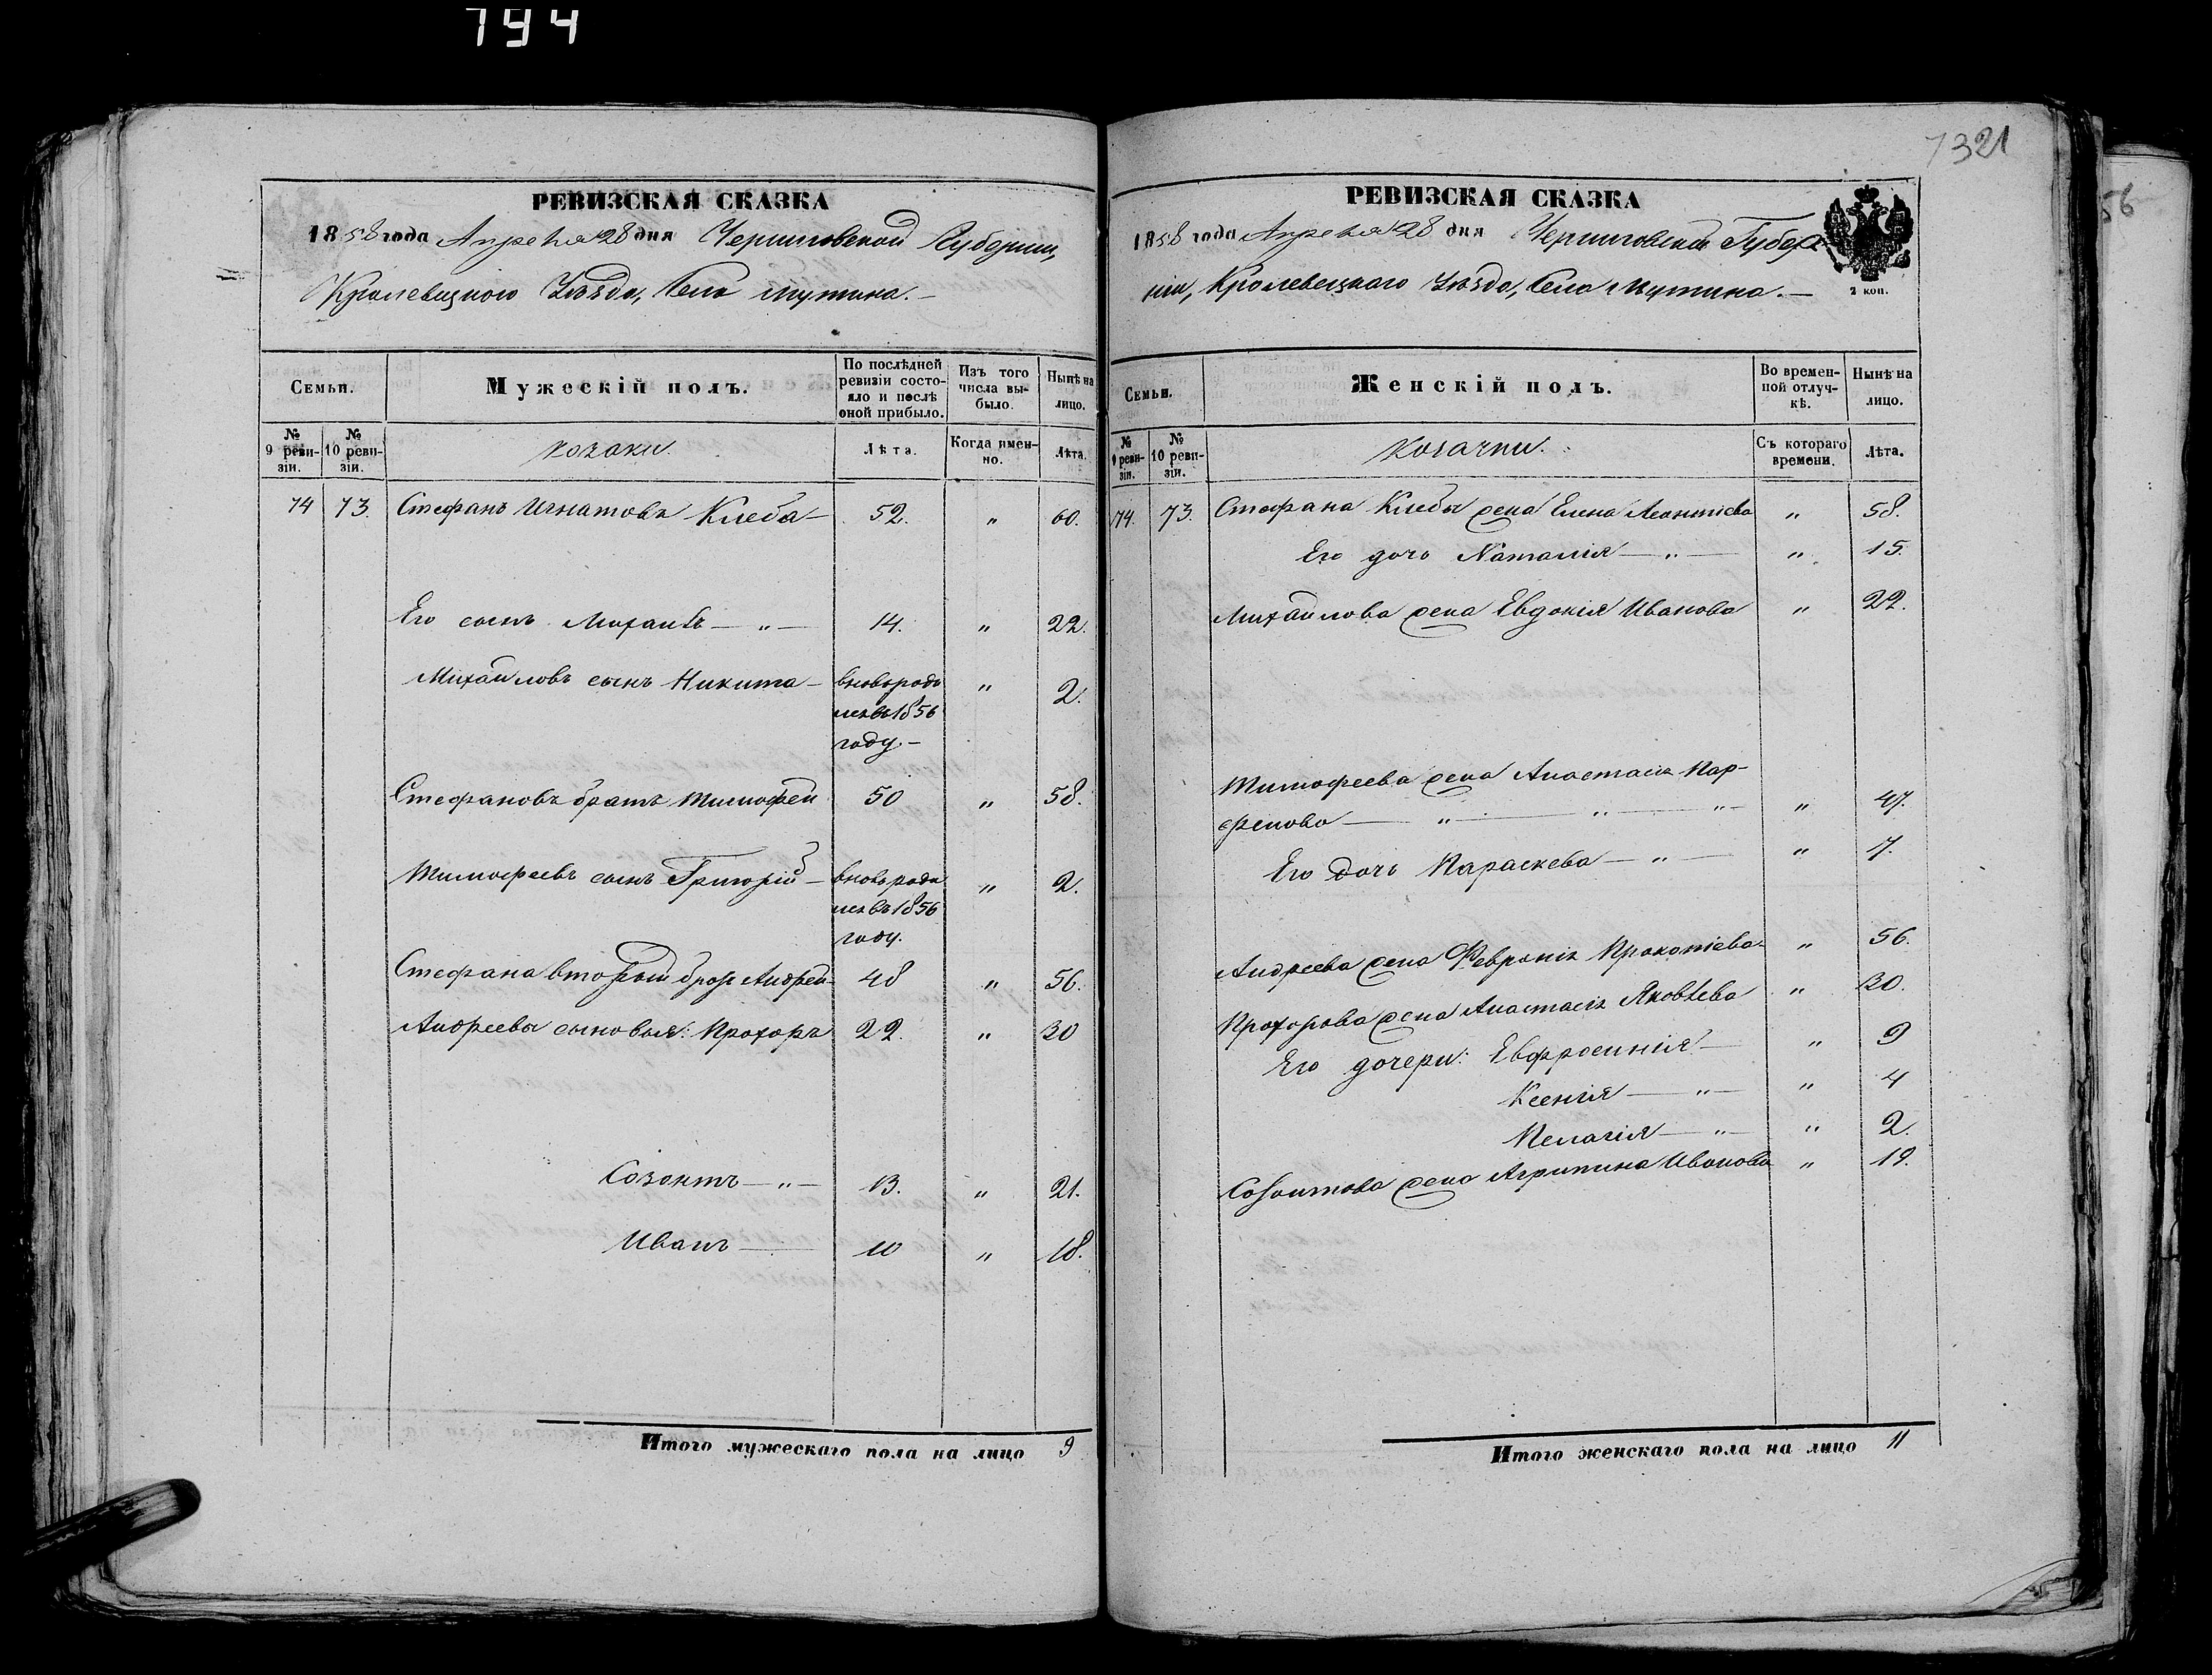 794
7321
56
РЕВИЗСКАЯ СКАЗКА
1858 года Апреля 28 дня Черниговской Губерніи,
Кролевецкого Уѣзда, Села Мутина.—
Семьи.
Мужескій полъ.
По послѣдней ревизіи состояло и послѣ оной прибыло.
Изъ того числа выбыло.
Нынѣ на лицо.
№ 9 ревизіи.
№ 10 ревизіи.
Козаки.
Лѣта.
Когда именно.
Лѣта.
74 73. Стефанъ Игнатовъ Клеба— 52. " 60.
Его сынъ Михаилъ — " — 14. " 22.
Михайловъ сынъ Никита — вновь роди " 2.
лся въ 1856
году.—
Стефановъ братъ Тимофей 50 " 58.
Тимофеевъ сынъ Григорій — вновь роди " 2.
лся въ 1856
году.
Стефана вторый братъ Андрей— 48 " 56.
Андреевы сыновья: Прохоръ 22. " 30
Созонтъ — " — 13. " 21.
Иванъ — 10 " 18.
Итого мужескаго пола на лицо 9
РЕВИЗСКАЯ СКАЗКА
1858 года Апреля 28 дня Черниговской Губер
ніи, Кролевецкаго Уѣзда, Села Мутина.—
2 коп.
Семьи.
Женскій полъ.
Во временной отлучкѣ.
Нынѣ на лицо.
№ 9 ревизіи.
№ 10 ревизіи.
Козачки.
Съ котораго времени.
Лѣта.
74. 73. Стефана Клебы жена Елена Леонтіева " 58.
Его дочь Наталія — " — " 15.
Михайлова жена Евдокія Иванова " 22.
Тимофеева жена Анастасія Пар-
фенова — " — " — " — " 47.
Его дочь Параскева — " — " 7.
Андреева жена Февронія Прокопіева— " 56.
Прохорова жена Анастасія Яковлева " 30.
Его дочери: Евфросинія — " 9
Ксенія — " — " 4
Пелагія — " — " 2.
Созонтова жена Агрипина Иванова " 19.
Итого женскаго пола на лицо 11